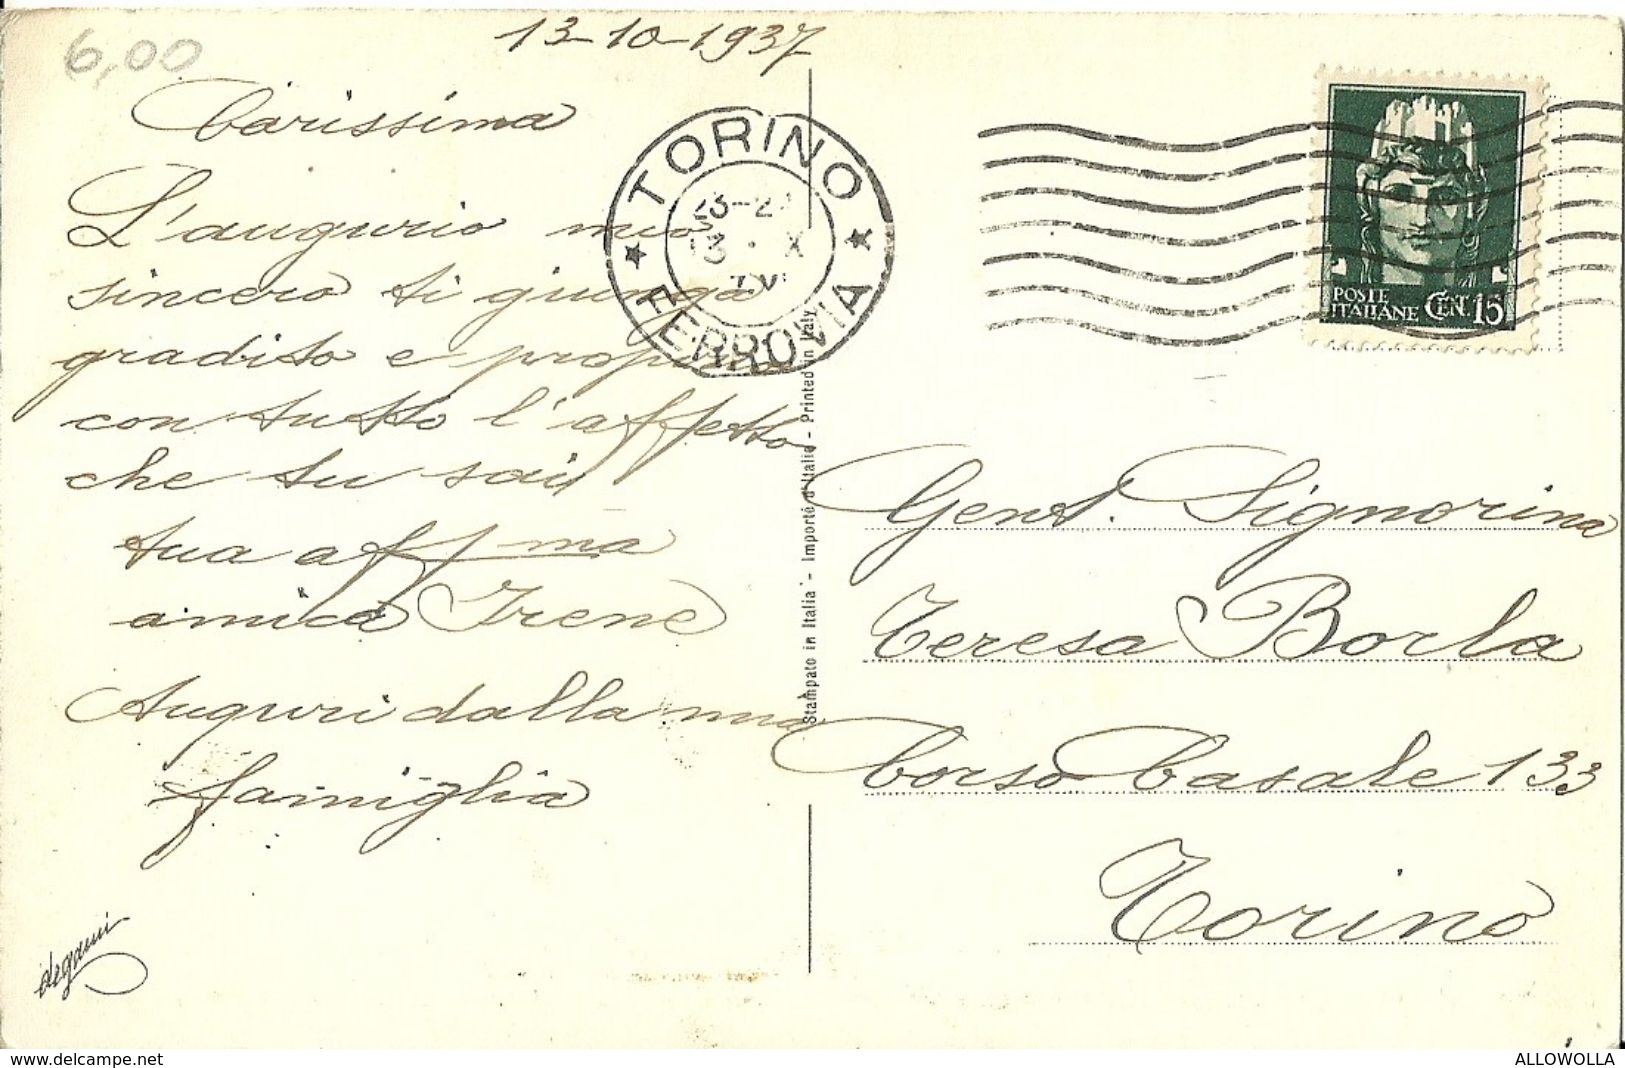 6,00
13-10-1937
Carissima
L'augurio mio
sincero ti giunga
gradito e propizio
con tutto l'affetto
che tu sai
tua aff-ma
amica Irene
Auguri dalla mia
famiglia
degami
TORINO
FERROVIA
POSTE
ITALIANE CEN. 15
Stampato in Italia - Importé d'Italie - Printed in Italy
Gent. Signorina
Teresa Borla
Corso Casale 133
Torino
www.delcampe.net
ALLOWOLLA